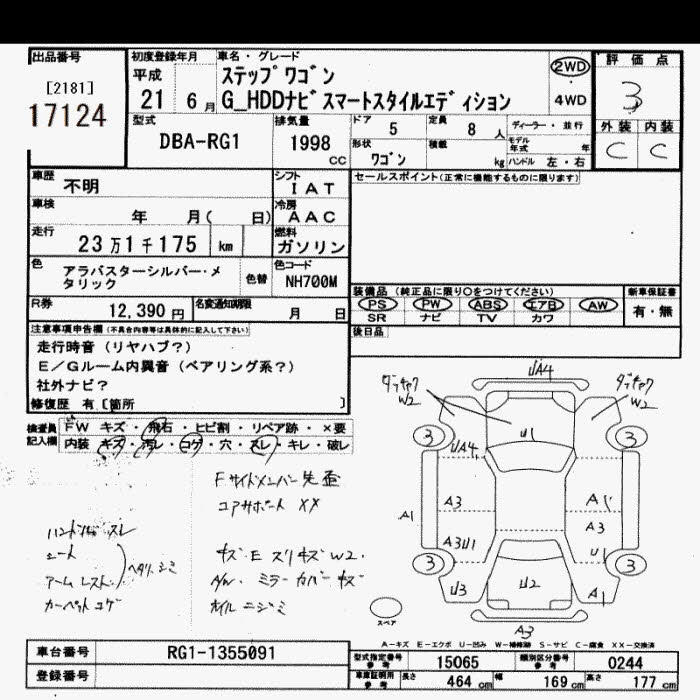 出品番号
[2181]
17124
初度登録年月
平成
21 6月
車名・グレード
ステップワゴン
G_HDDナビスマートスタイルエディション
2WD
4WD
評価点
3
外装 内装
C C
型式
DBA-RG1
排気量
1998
CC
ドア 5
定員 8 人
ディーラー・並行
形状
ワゴン
積載 kg
モデル年式 年
ハンドル 左・右
車歴
不明
シフト
IAT
セールスポイント(正常に機能するものに限ります)
車検
年 月( 日)
冷房
AAC
走行
23万1千175 km
燃料
ガソリン
色
アラバスターシルバー・メタリック
色替
色コード
NH700M
R券
12,390円
名変通知期限
月 日
装備品(純正品に限り○をつけてください)
PS PW ABS エアB AW
SR ナビ TV カワ
新車保証書
有・無
後日品
注意事項申告欄(不具合内容等は具体的に記入して下さい)
走行時音(リヤハブ?)
E/Gルーム内異音(ベアリング系?)
社外ナビ?
修復歴 有[箇所 ]
検査員記入欄
FW キズ・飛石・ヒビ割・リペア跡・×要
内装 キズ・汚レ・コゲ・穴・スレ・キレ・破レ
Fサイドメンバー先歪
コアサポート XX
ハンドル スレ
シート
アームレスト
ヘタリ シミ
カーペット コゲ
キズ・E スリキズ W2.
A/W. ミラーカバーキズ
ホイルニジミ
UA4
W2
W2
U1
3
3
UA4
A3
A1
A1
A3
A3U1
U1
3
3
U3
U2
A1
A3
スペア
A-キズ E-エクボ U-凹み W-補修跡 S-サビ C-腐食 XX-交換済
車台番号
RG1-1355091
登録番号
型式指定番号 参考
15065
類別区分番号 参考
0244
車庫証明用 参考
長さ 464 cm
幅 169 cm
高さ 177 cm